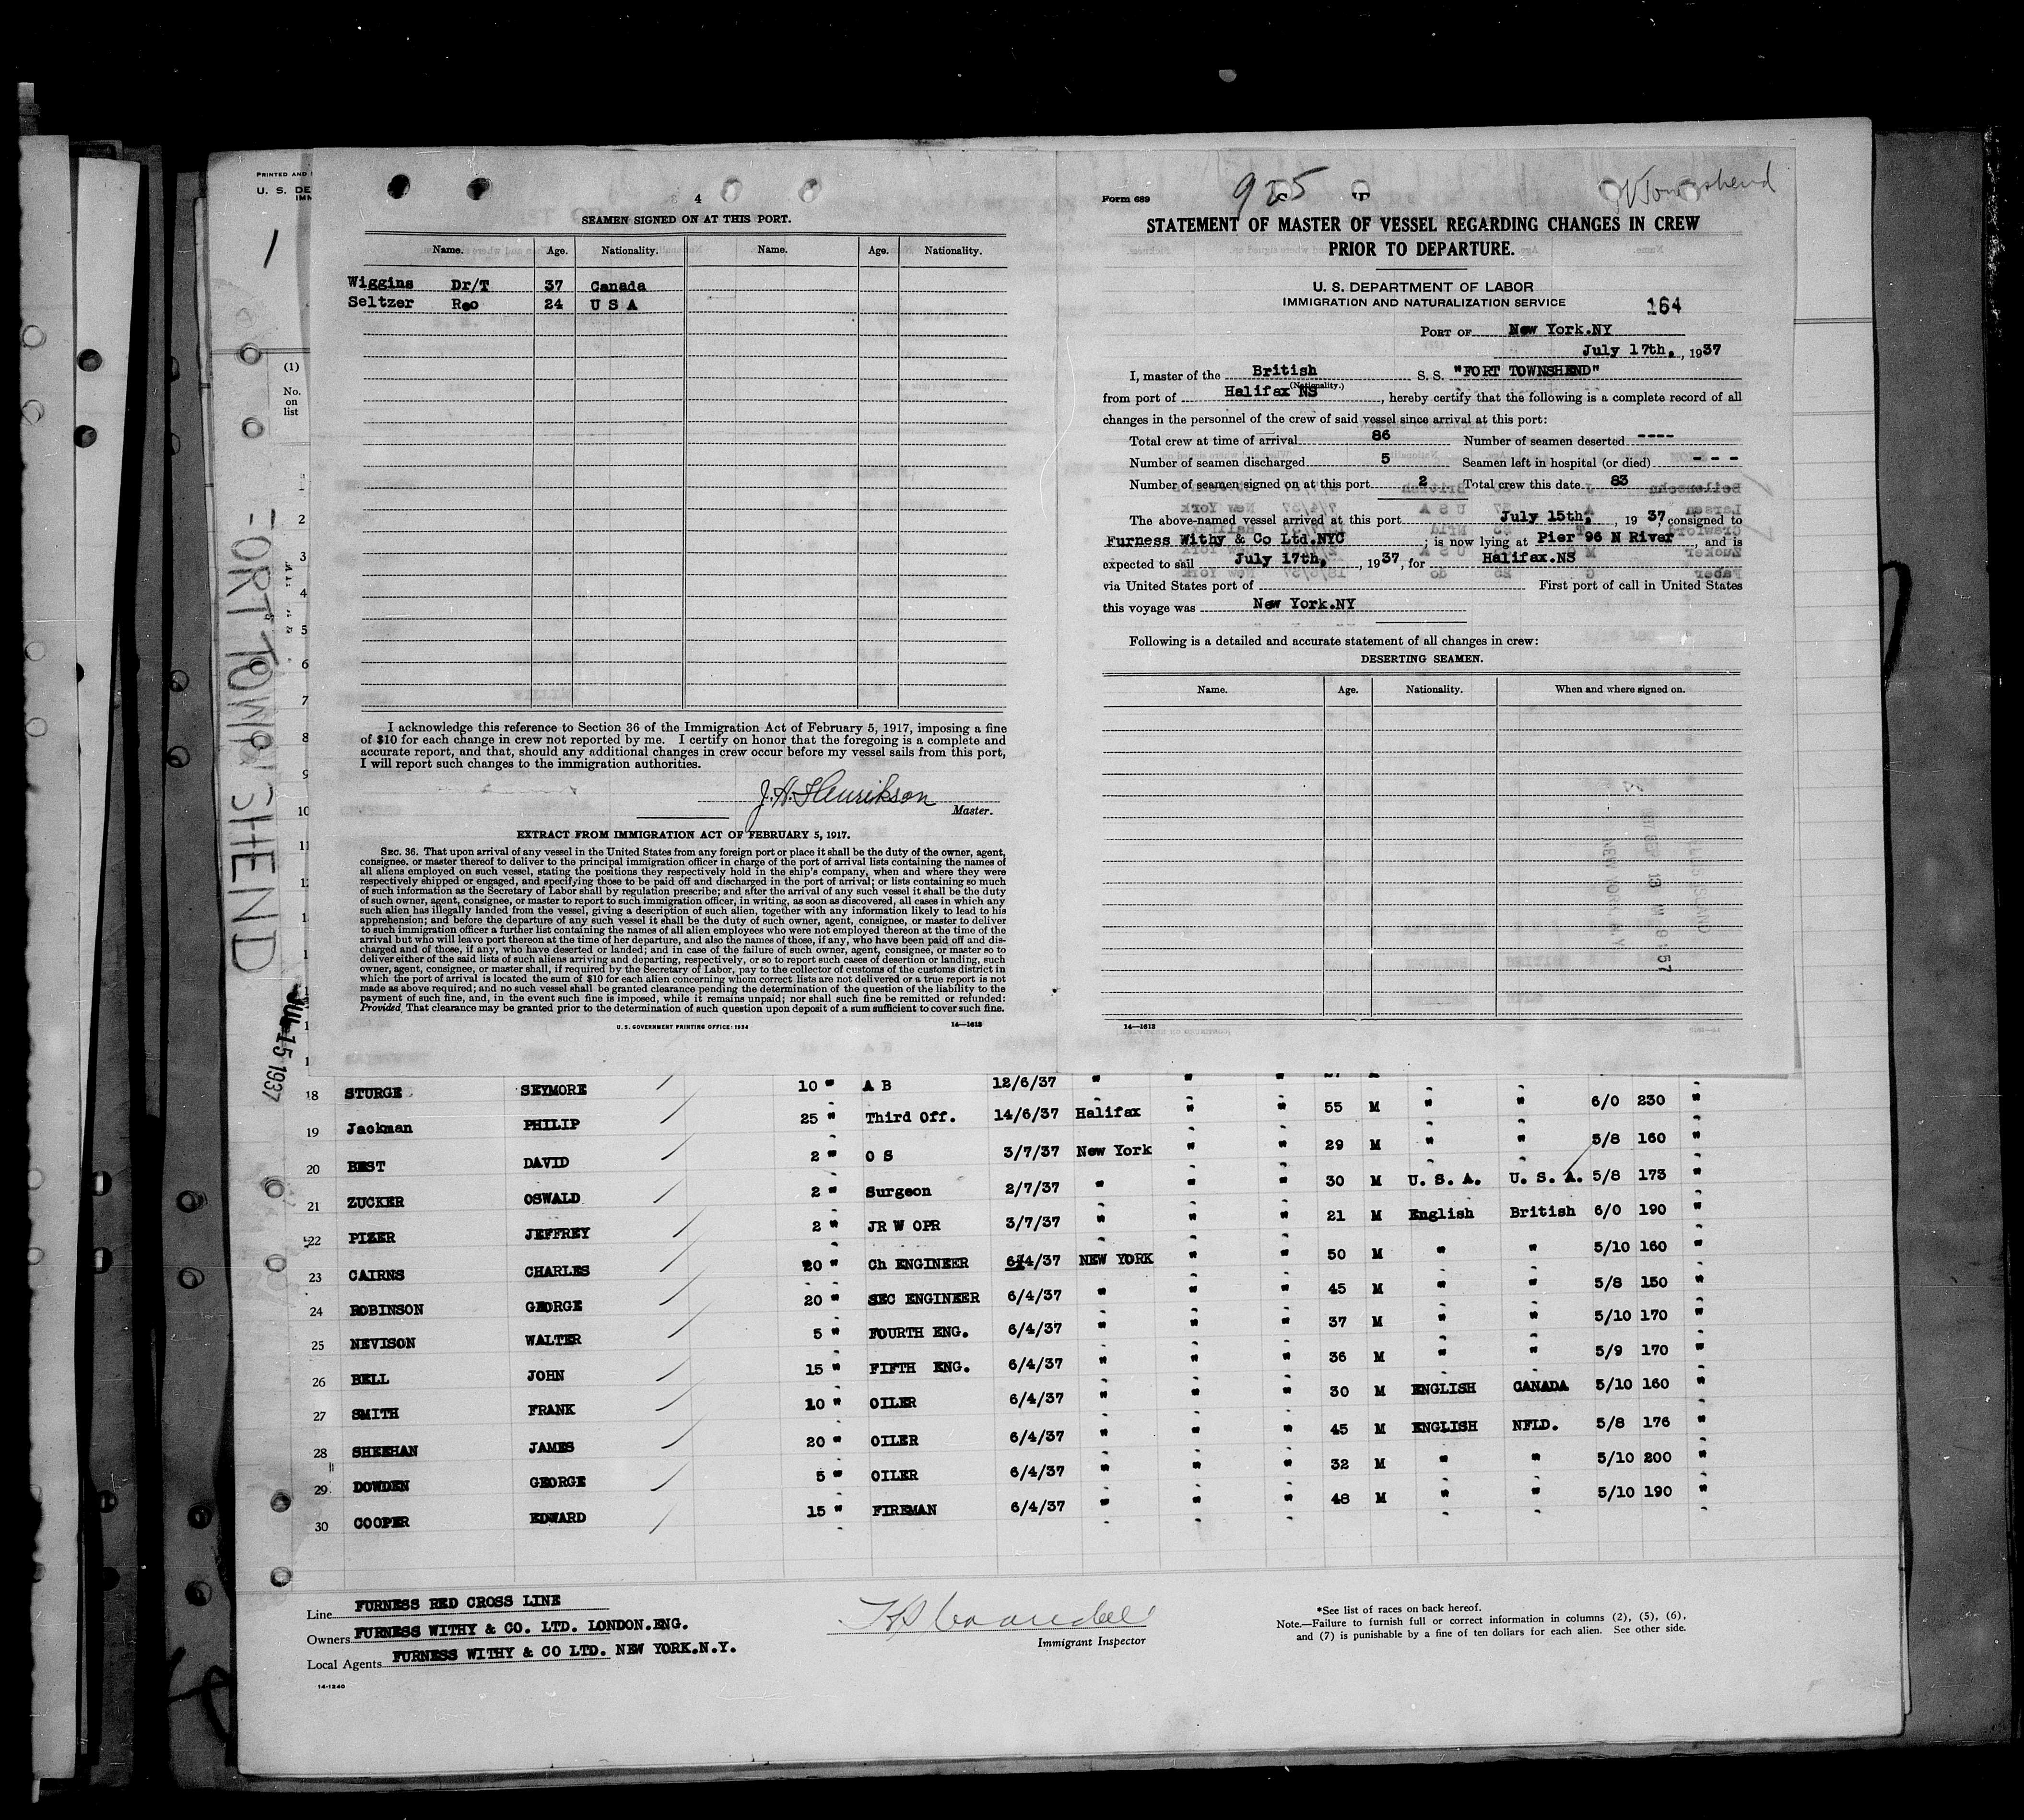 PRINTED AND
U. S. DE
IMM
1
(1)
No.
on
list
FORT TOWNSHEND
JUL 15 1937
4
SEAMEN SIGNED ON AT THIS PORT.
Name. Age. Nationality. Name. Age. Nationality.
Wiggins Dr/T 37 Canada
Seltzer Reo 24 U S A
I acknowledge this reference to Section 36 of the Immigration Act of February 5, 1917, imposing a fine
of $10 for each change in crew not reported by me. I certify on honor that the foregoing is a complete and
accurate report, and that, should any additional changes in crew occur before my vessel sails from this port,
I will report such changes to the immigration authorities.
J. A. Henrikson
Master.
EXTRACT FROM IMMIGRATION ACT OF FEBRUARY 5, 1917.
SEC. 36. That upon arrival of any vessel in the United States from any foreign port or place it shall be the duty of the owner, agent,
consignee, or master thereof to deliver to the principal immigration officer in charge of the port of arrival lists containing the names of
all aliens employed on such vessel, stating the positions they respectively hold in the ship's company, when and where they were
respectively shipped or engaged, and specifying those to be paid off and discharged in the port of arrival; or lists containing so much
of such information as the Secretary of Labor shall by regulation prescribe; and after the arrival of any such vessel it shall be the duty
of such owner, agent, consignee, or master to report to such immigration officer, in writing, as soon as discovered, all cases in which any
such alien has illegally landed from the vessel, giving a description of such alien, together with any information likely to lead to his
apprehension; and before the departure of any such vessel it shall be the duty of such owner, agent, consignee, or master to deliver
to such immigration officer a further list containing the names of all alien employees who were not employed thereon at the time of the
arrival but who will leave port thereon at the time of her departure, and also the names of those, if any, who have been paid off and dis-
charged and of those, if any, who have deserted or landed; and in case of the failure of such owner, agent, consignee, or master so to
deliver either of the said lists of such aliens arriving and departing, respectively, or so to report such cases of desertion or landing, such
owner, agent, consignee, or master shall, if required by the Secretary of Labor, pay to the collector of customs of the customs district in
which the port of arrival is located the sum of $10 for each alien concerning whom correct lists are not delivered or a true report is not
made as above required; and no such vessel shall be granted clearance pending the determination of the question of the liability to the
payment of such fine, and, in the event such fine is imposed, while it remains unpaid; nor shall such fine be remitted or refunded:
Provided, That clearance may be granted prior to the determination of such question upon deposit of a sum sufficient to cover such fine.
U.S. GOVERNMENT PRINTING OFFICE: 1934 14—1613
925 Townshend
Form 689
STATEMENT OF MASTER OF VESSEL REGARDING CHANGES IN CREW
PRIOR TO DEPARTURE.
U. S. DEPARTMENT OF LABOR
IMMIGRATION AND NATURALIZATION SERVICE 164
PORT OF New York.NY
July 17th., 1937
I, master of the British S. S. "FORT TOWNSHEND"
(Nationality.)
from port of Halifax NS, hereby certify that the following is a complete record of all
changes in the personnel of the crew of said vessel since arrival at this port:
Total crew at time of arrival 86 Number of seamen deserted ----
Number of seamen discharged 5 Seamen left in hospital (or died) - - -
Number of seamen signed on at this port 2 Total crew this date 83
The above-named vessel arrived at this port July 15th, 1937, consigned to
Furness Withy & Co Ltd.NYC; is now lying at Pier 96 N River, and is
expected to sail July 17th., 1937, for Halifax.NS
via United States port of First port of call in United States
this voyage was New York.NY
Following is a detailed and accurate statement of all changes in crew:
DESERTING SEAMEN.
Name. Age. Nationality. When and where signed on.
14—1613
1
2
3
4
5
6
7
8
9
10
18 STURGE SEYMORE 10 " A B 12/6/37 " " "
19 Jackman PHILIP 25 " Third Off. 14/6/37 Halifax " " 55 M " " 6/0 230 "
20 BEST DAVID 2 " O S 3/7/37 New York " " 29 M " " 5/8 160 "
21 ZUCKER OSWALD 2 " Surgeon 2/7/37 " " " 30 M U. S. A. U. S. A. 5/8 173 "
22 PIZER JEFFREY 2 " JR W OPR 3/7/37 " " " 21 M English British 6/0 190 "
23 CAIRNS CHARLES 20 " Ch ENGINEER 6/4/37 NEW YORK " " 50 M " " 5/10 160 "
24 ROBINSON GEORGE 20 " SEC ENGINEER 6/4/37 " " " 45 M " " 5/8 150 "
25 NEVISON WALTER 5 " FOURTH ENG. 6/4/37 " " " 37 M " " 5/10 170 "
26 BELL JOHN 15 " FIFTH ENG. 6/4/37 " " " 36 M " " 5/9 170 "
27 SMITH FRANK 10 " OILER 6/4/37 " " " 30 M ENGLISH CANADA 5/10 160 "
28 SHEEHAN JAMES 20 " OILER 6/4/37 " " " 45 M ENGLISH NFLD. 5/8 176 "
29 DOWDEN GEORGE 5 " OILER 6/4/37 " " " 32 M " " 5/10 200 "
30 COOPER EDWARD 15 " FIREMAN 6/4/37 " " " 48 M " " 5/10 190 "
Line FURNESS RED CROSS LINE
Owners FURNESS WITHY & CO. LTD. LONDON.ENG.
Local Agents FURNESS WITHY & CO LTD. NEW YORK.N.Y.
14-1240
Immigrant Inspector
*See list of races on back hereof.
Note.—Failure to furnish full or correct information in columns (2), (5), (6),
and (7) is punishable by a fine of ten dollars for each alien. See other side.